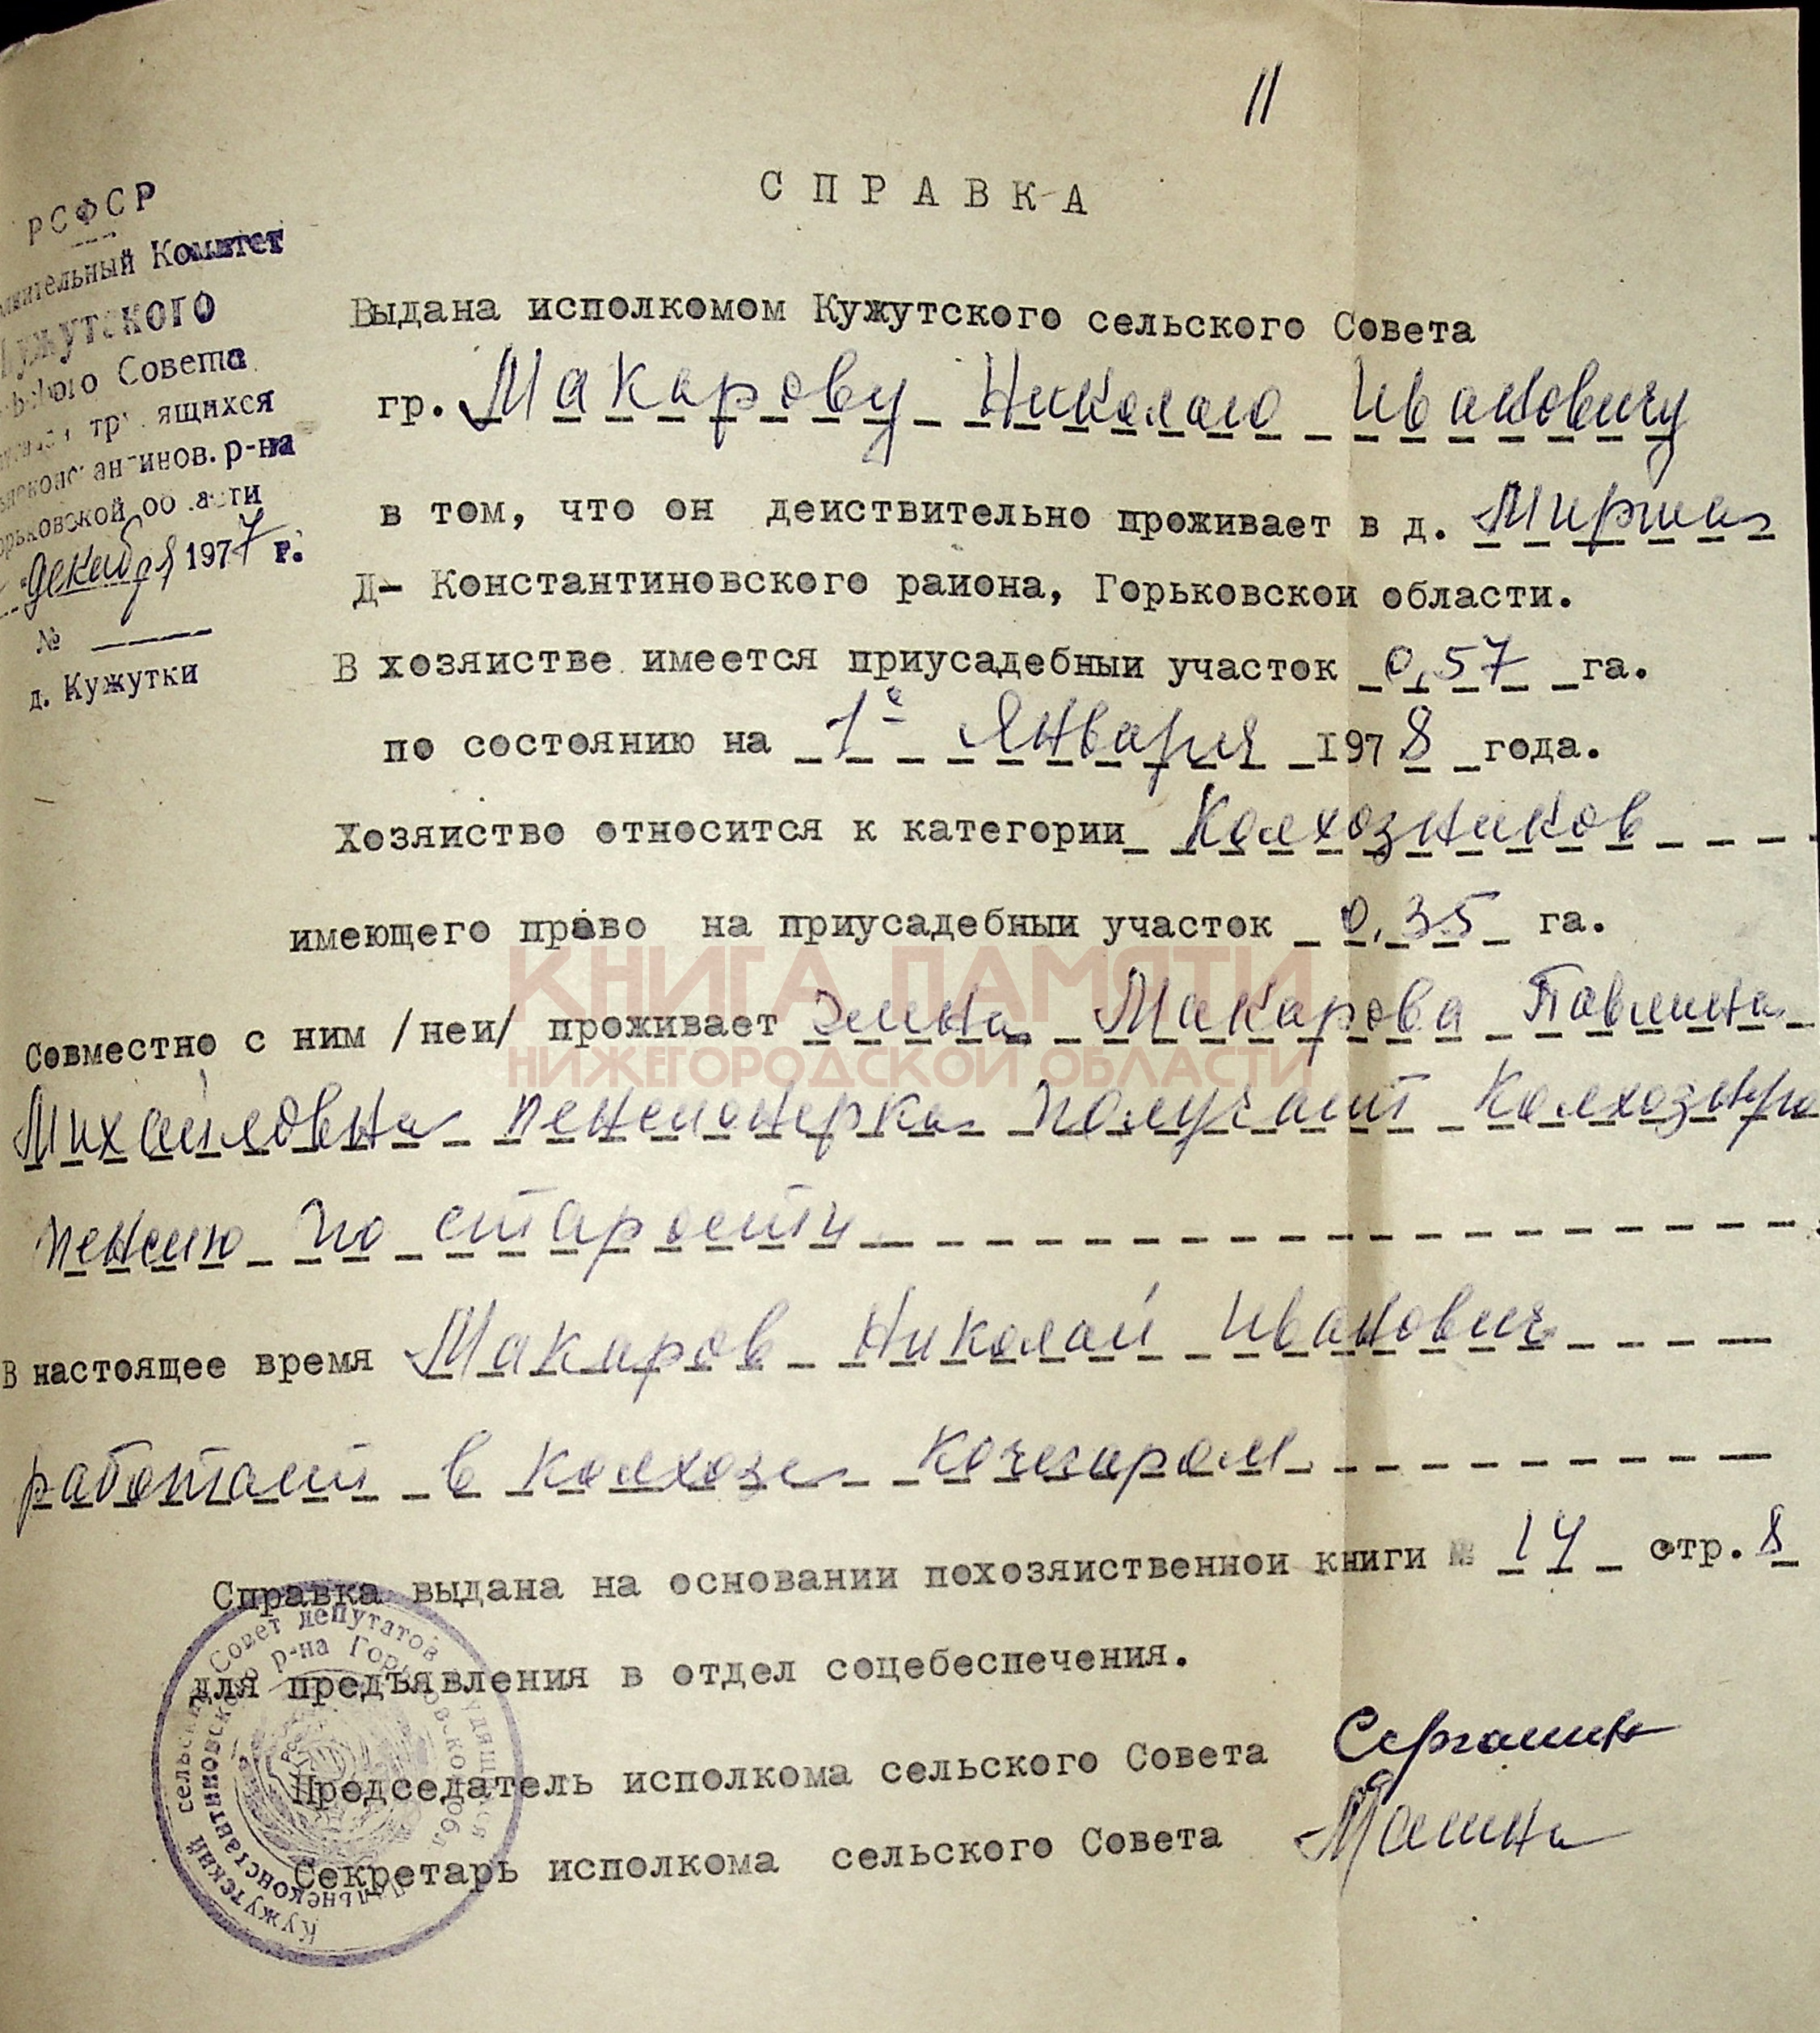 11
СПРАВКА
РСФСР
Комитет
Кужутского
Совета
р-на
декабря 1977 г.
№
д. Кужутки
Выдана исполкомом Кужутского сельского Совета
гр. Макарову Николаю Ивановичу
в том, что он действительно проживает в д.
Д- Константиновского раиона, Горьковскои области.
В хозяистве имеется приусадебныи участок 0,57 га.
по состоянию на 1е Января 1978 года.
Хозяиство относится к категории Колхозников
имеющего право на приусадебныи участок 0,35 га.
КНИГА ПАМЯТИ
Совместно с ним /неи/ проживает жена Макарова Павлина
НИЖЕГОРОДСКОЙ ОБЛАСТИ
Михайловна пенсионерка получает
пенсию по старости
В настоящее время Макаров Николай Иванович
работает в колхозе кочегаром
Справка выдана на основании похозяиственнои книги № 14 стр. 8
для предъявления в отдел соцебеспечения.
Председатель исполкома сельского Совета
Секретарь исполкома сельского Совета
Кужутский сельский Совет депутатов